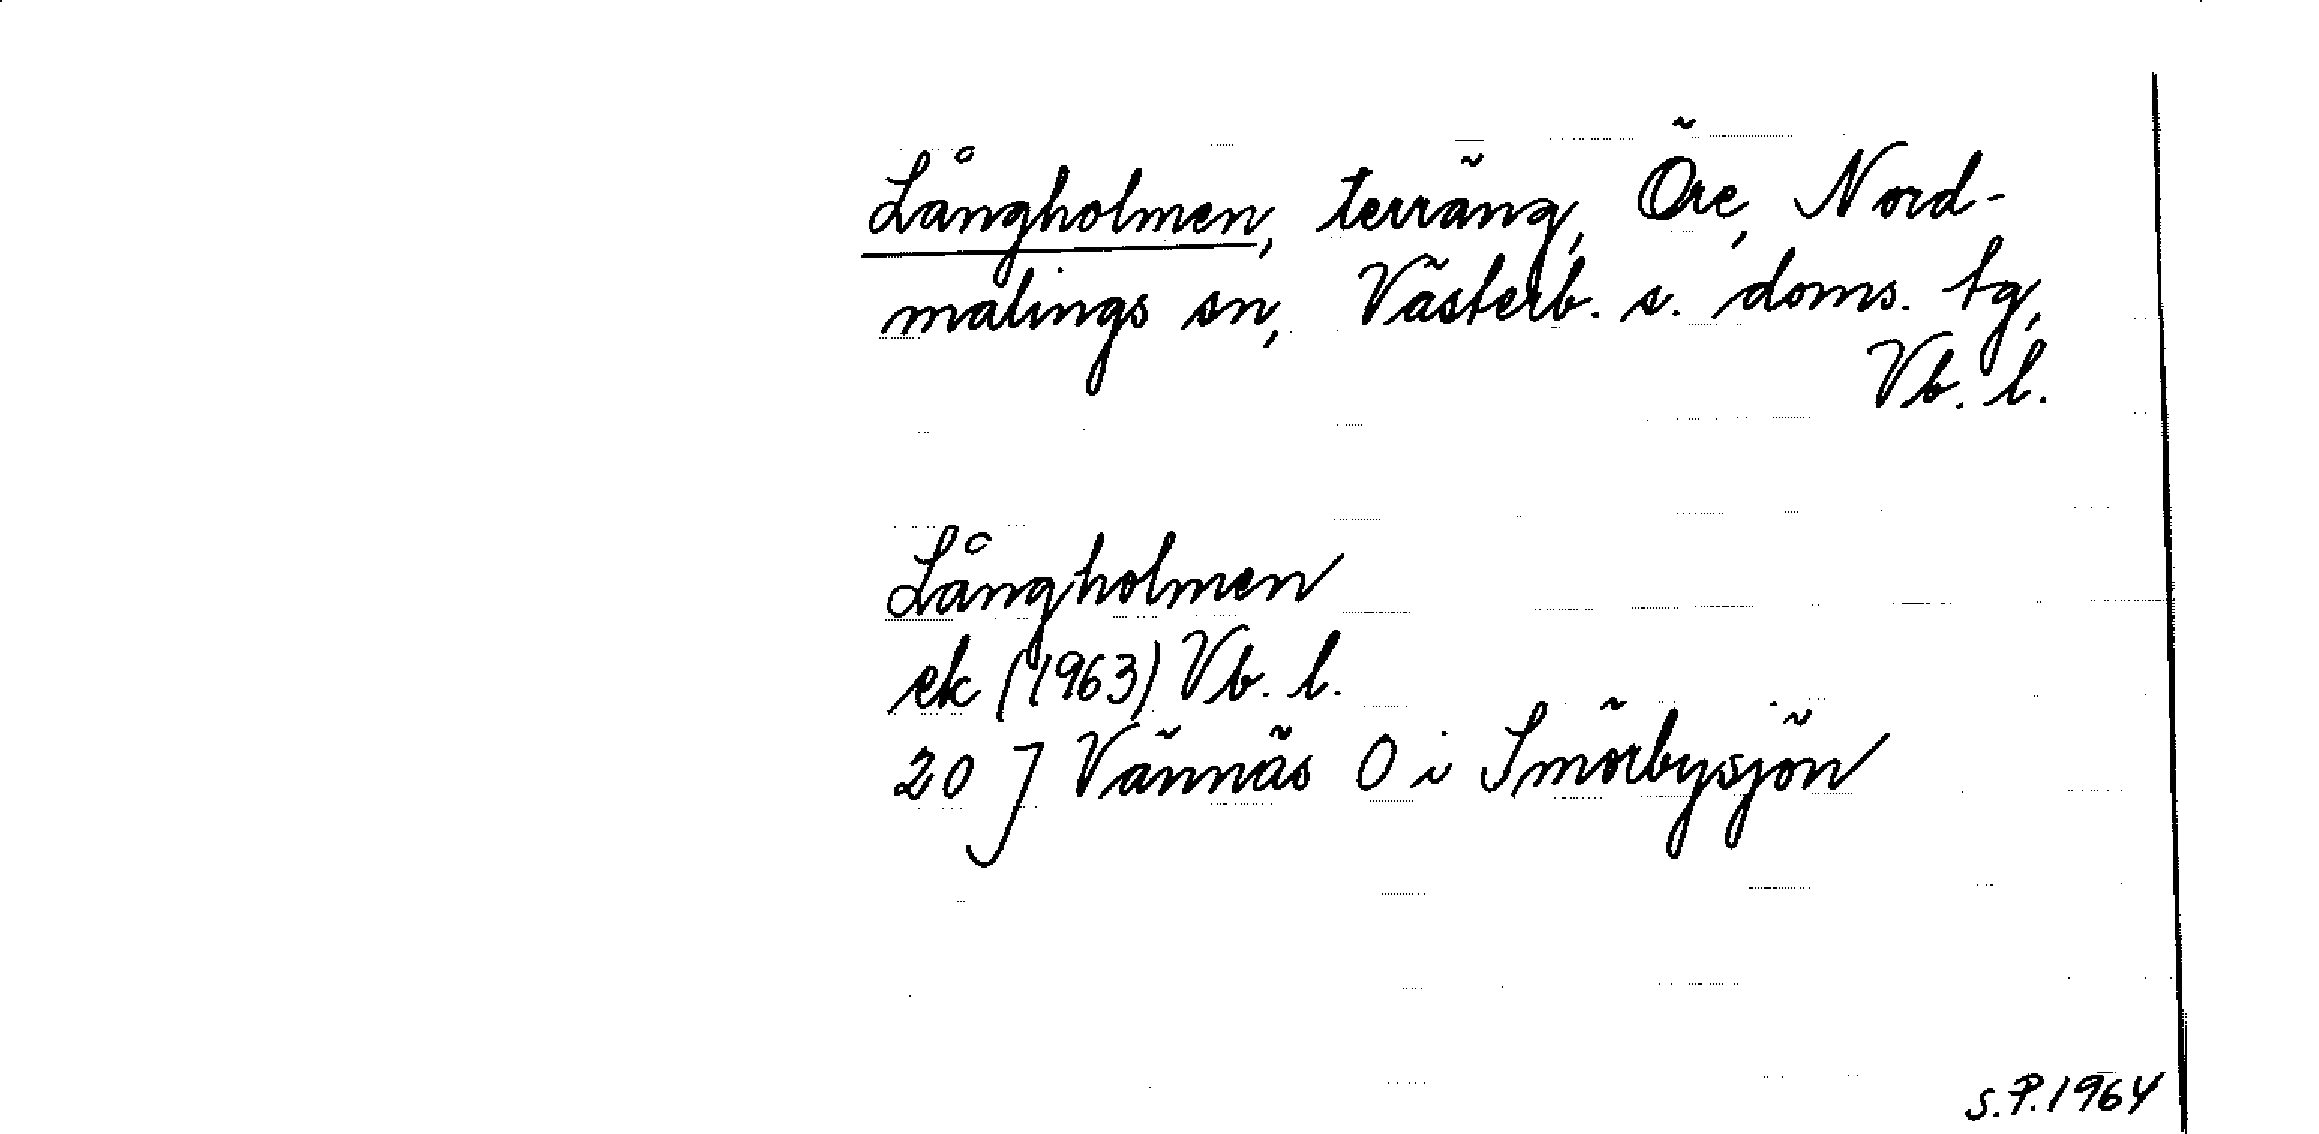 Långholmen, terräng, Öre, Nord-
malings sn, Västerb. s. doms. tg,
Vb. l.
Långholmen
ek (1963) Vb. l.
20 J Vännäs O i Smörbysjön
S.P. 1964